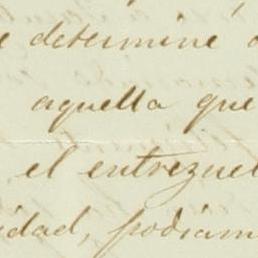 e determiné a
aquella que
el entrezuel
idad, podiam